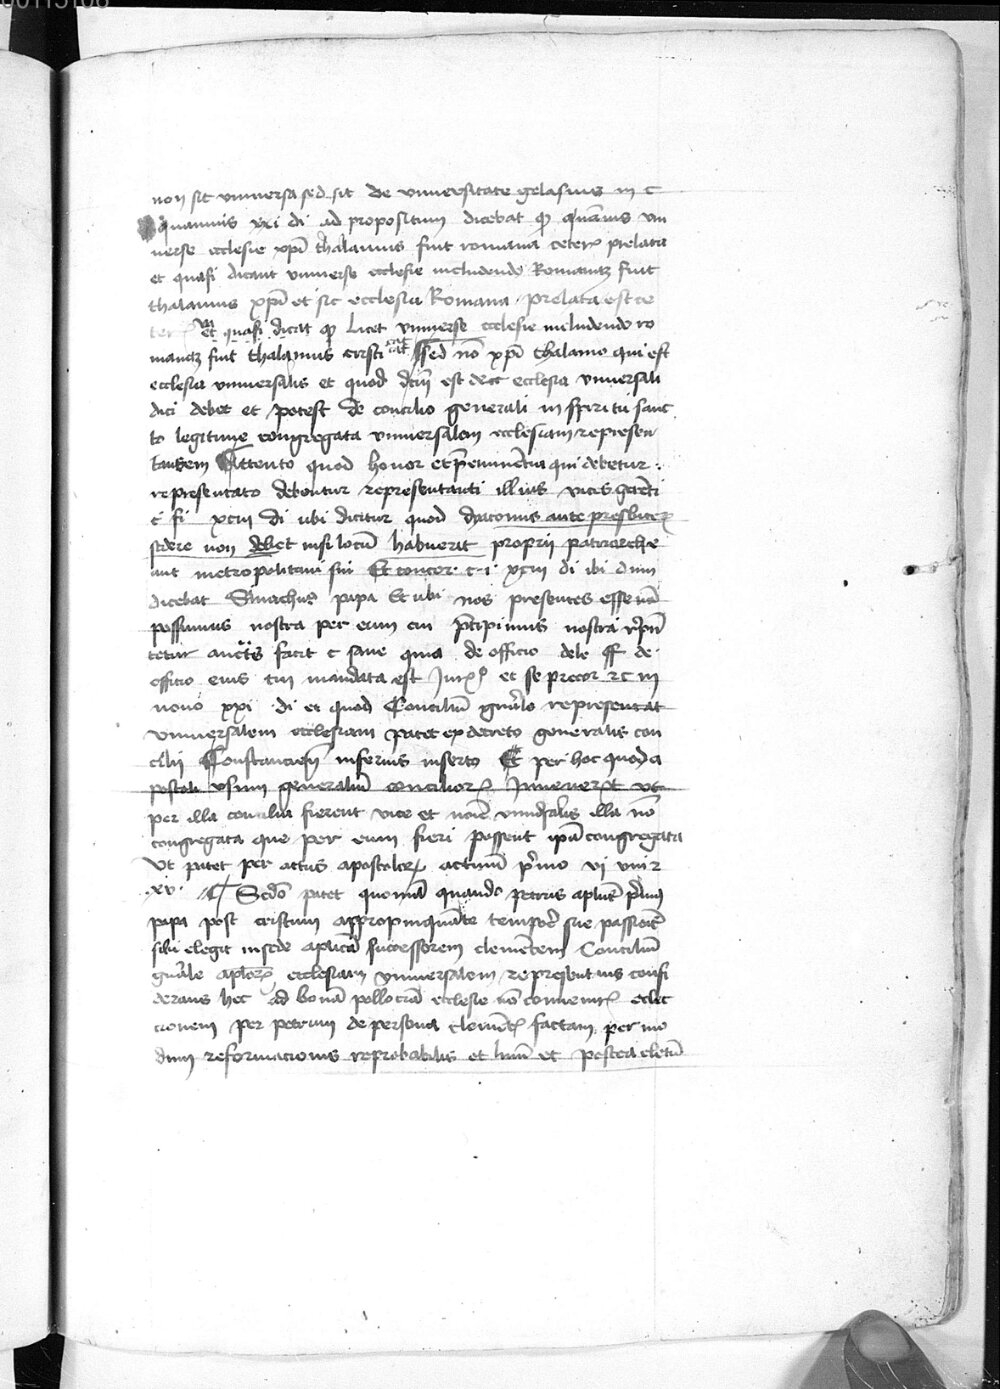 non sit universa sed sit de universitate gelasius in c
quamuis xxi di ad propositum dicebat qđ quāuis vni
uerse ecclesie xpī thalamus sint romana ceterꝭ prelata
et quasi dicant vniuerse ecclesie includendo Romanaꝫ sint
thalamus xpī et sic ecclesia Romana prelata est ce
et quasi dicat qđ licet vniuerse ecclesie includendo ro
manaꝫ sint thalamus cristi sed nō xpī thalamo qui est
ecclesia vniuersalis et quod dcm̄ est de ecclesia vniuersali
dici debet et potest de concilio generali in spiritu sanc
to legitime congregata vniuersalem ecclesiam represen
tantem Attento quod honor et p̄eminencia qui debetur
representato debentur representanti illius vices gerēti
c fi xciii di ubi dicitur quod dyaconus ante presbiterꝭ
sedere non debet nisi locū habuerit proprii patriarche
aut metropolitani sui Et concor c i xciii di ibi dum
dicebat Simachus papa Et ubi nos presentes esse nō
possumus nostra per eum cui p̄cipimus nostra rp̄n
tetur auctās facit c sane quia de officio dele ff de
officio eius cui mandata est Jurꝭ et se precor
nono xxi di et quod Concilium gn̄ale representat
vniuersalem ecclesiam patet ex decreto generalis con
cilii Constancien̄ inferius inserto Et per hoc quod a
postoli vsum generaliū conciliorꝭ Inuenerūt vt
per illa concilia fierent vice et noīe vniūsalis illa nō
congregata que per eum fieri possent ipā congregata
Vt patet per actus apostolorꝭ actuum p̄mo vi viii z
xv Scdō patet quoniā quando petrus
papa post cristum appropinquāte tempore sue passiois
sibi elegit in sede ap̄lica successorem clementem Concilium
gn̄ale ap̄lorꝭ ecclesiam vniuersalem representans consi
derans hec ad bonā polliciā ecclesie nō conuenire elec
cionem per petrum de persona clemētꝭ factam per mo
dum reformacionis reprobabilis et et postea